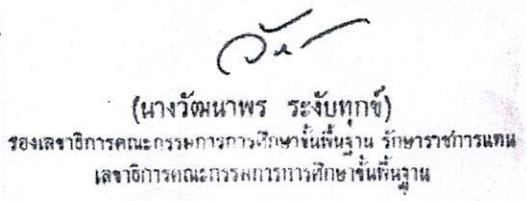 (นางวัฒนาพร ระงับทุกข์)
รองเลขาธิการคณะกรรมการการศึกษาขั้นพื้นฐาน รักษาราชการแทน
เลขาธิการคณะกรรมการการศึกษาขั้นพื้นฐาน